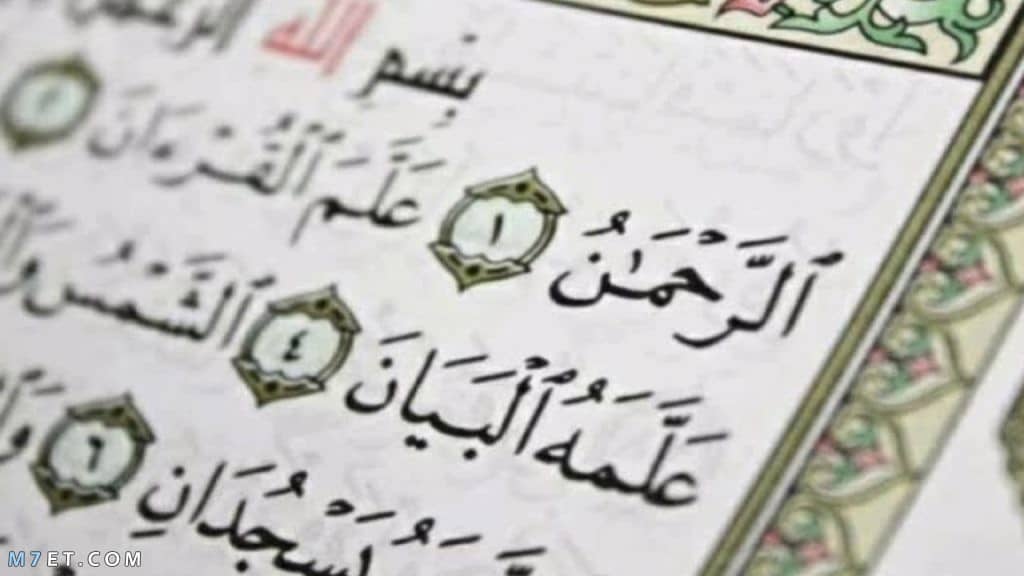 بِسْمِ اللَّهِ الرَّحْمَٰنِ
ٱلرَّحْمَٰنُ ١ عَلَّمَ ٱلْقُرْءَانَ ٢
عَلَّمَهُ ٱلْبَيَانَ ٤ ٱلشَّمْسُ
يَسْجُدَانِ ٦
M7ET.COM